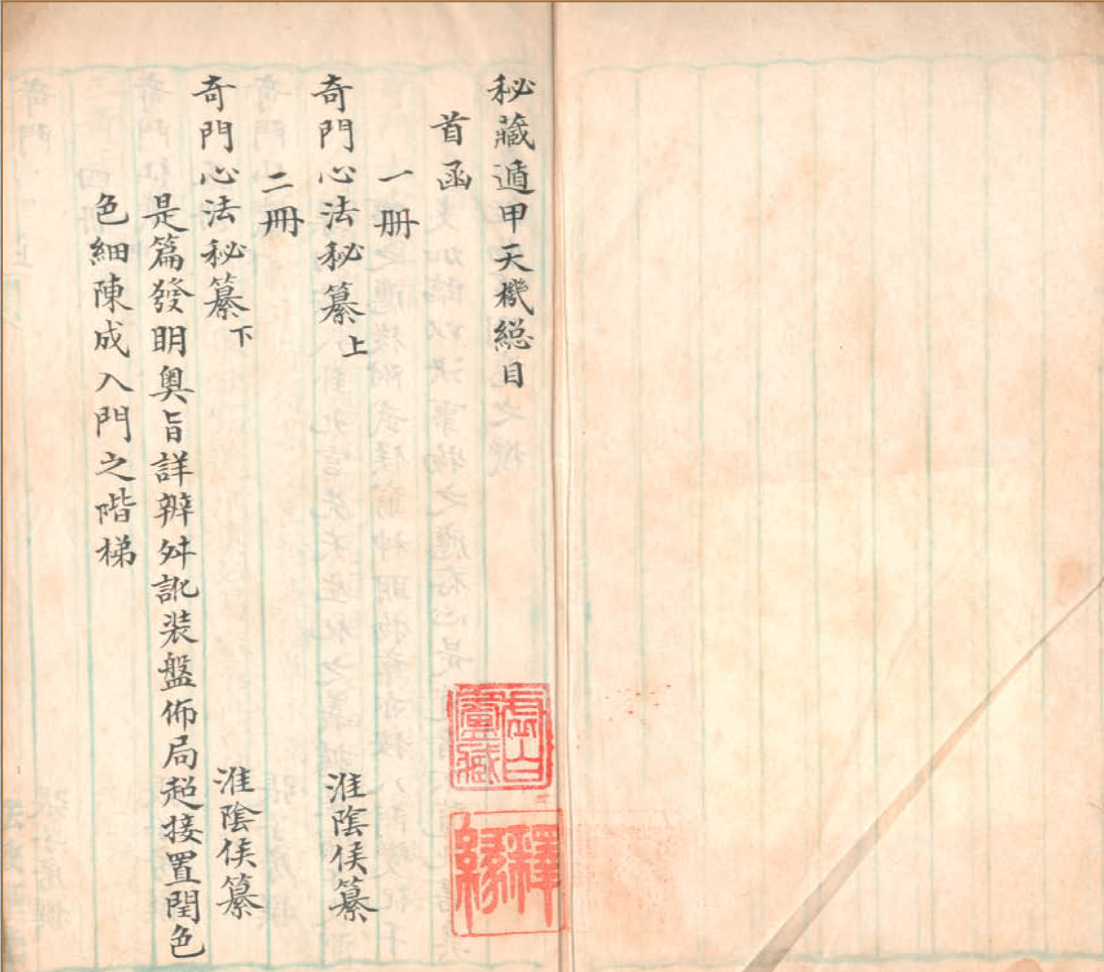 秘藏遁甲天機緫目
首函
一冊
奇門心法秘纂上 淮陰侯纂
二冊
奇門心法秘纂下 淮陰侯纂
是篇發明奥旨詳辨舛訛装盤佈局超接置閏色
色細陳成入門之階梯